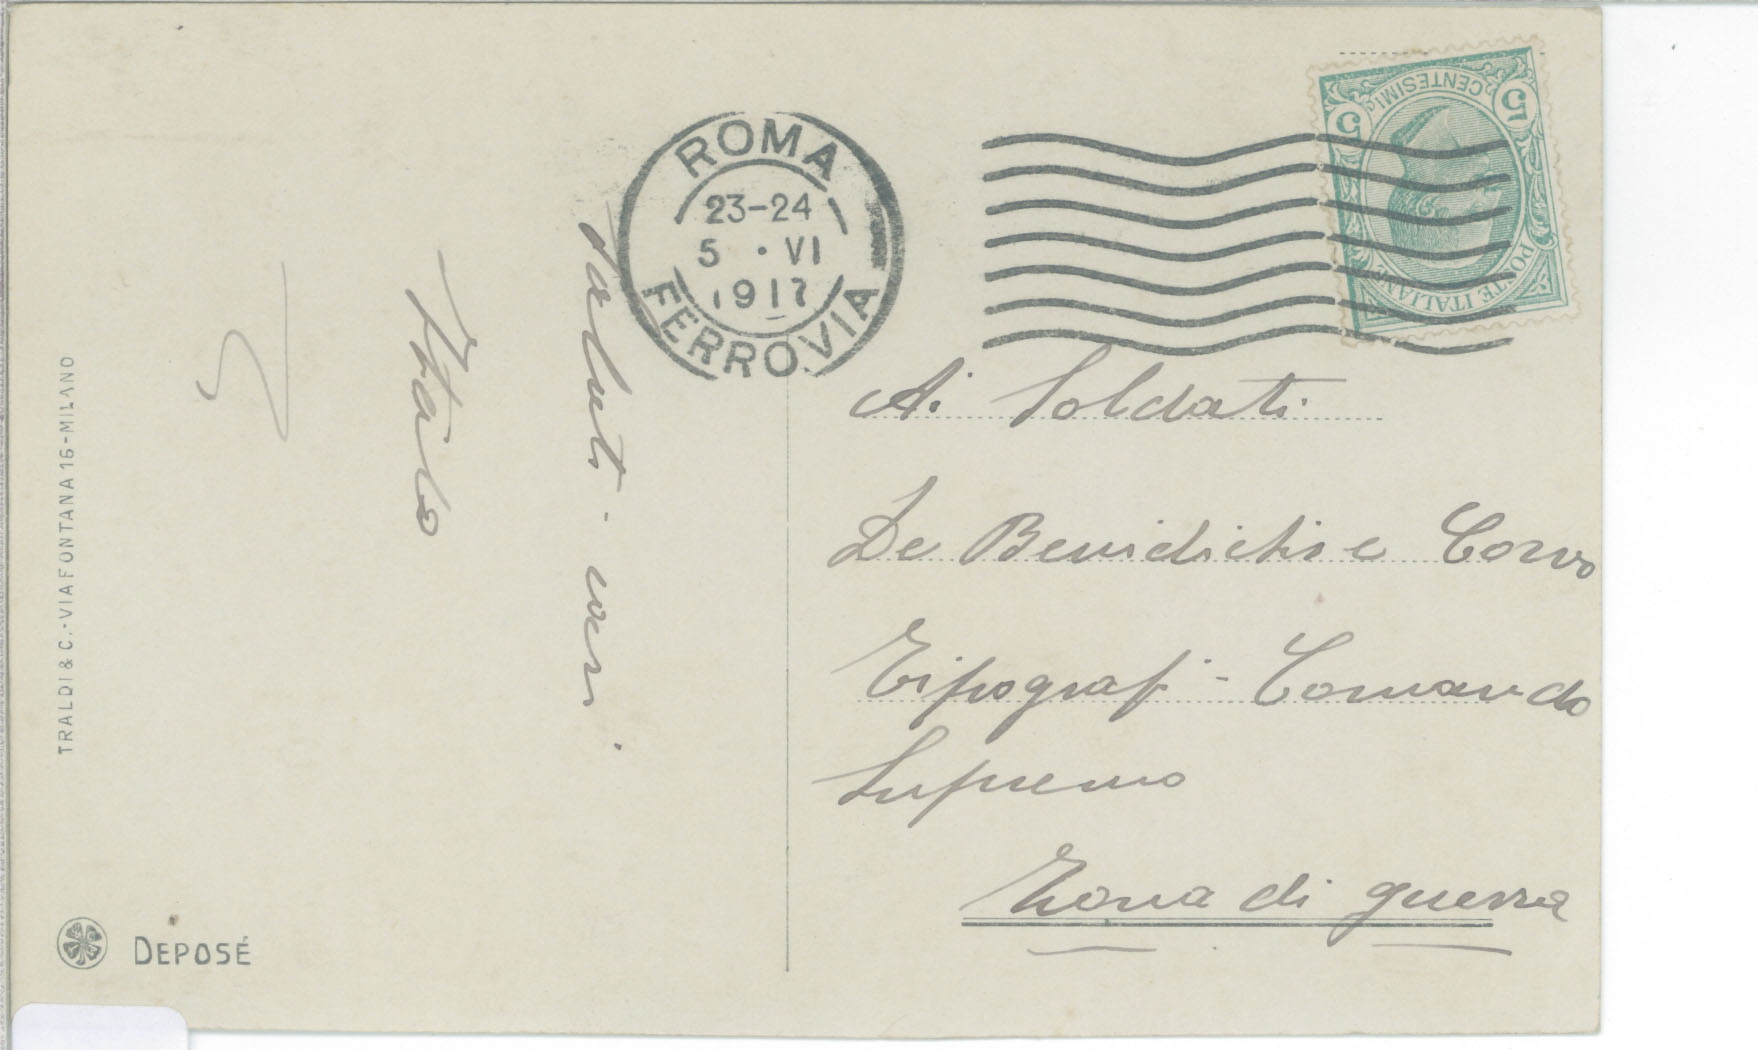 ROMA
23-24
5 · VI
1917
FERROVIA
5 CENTESIMI 5
POSTE ITALIANE
Ai Soldati
De Benidictis e Corvo
Tipografi - Comando
Supremo
Zona di guerra
saluti cari
Italo
TRALDI & C.-VIA FONTANA 16-MILANO
DEPOSÉ